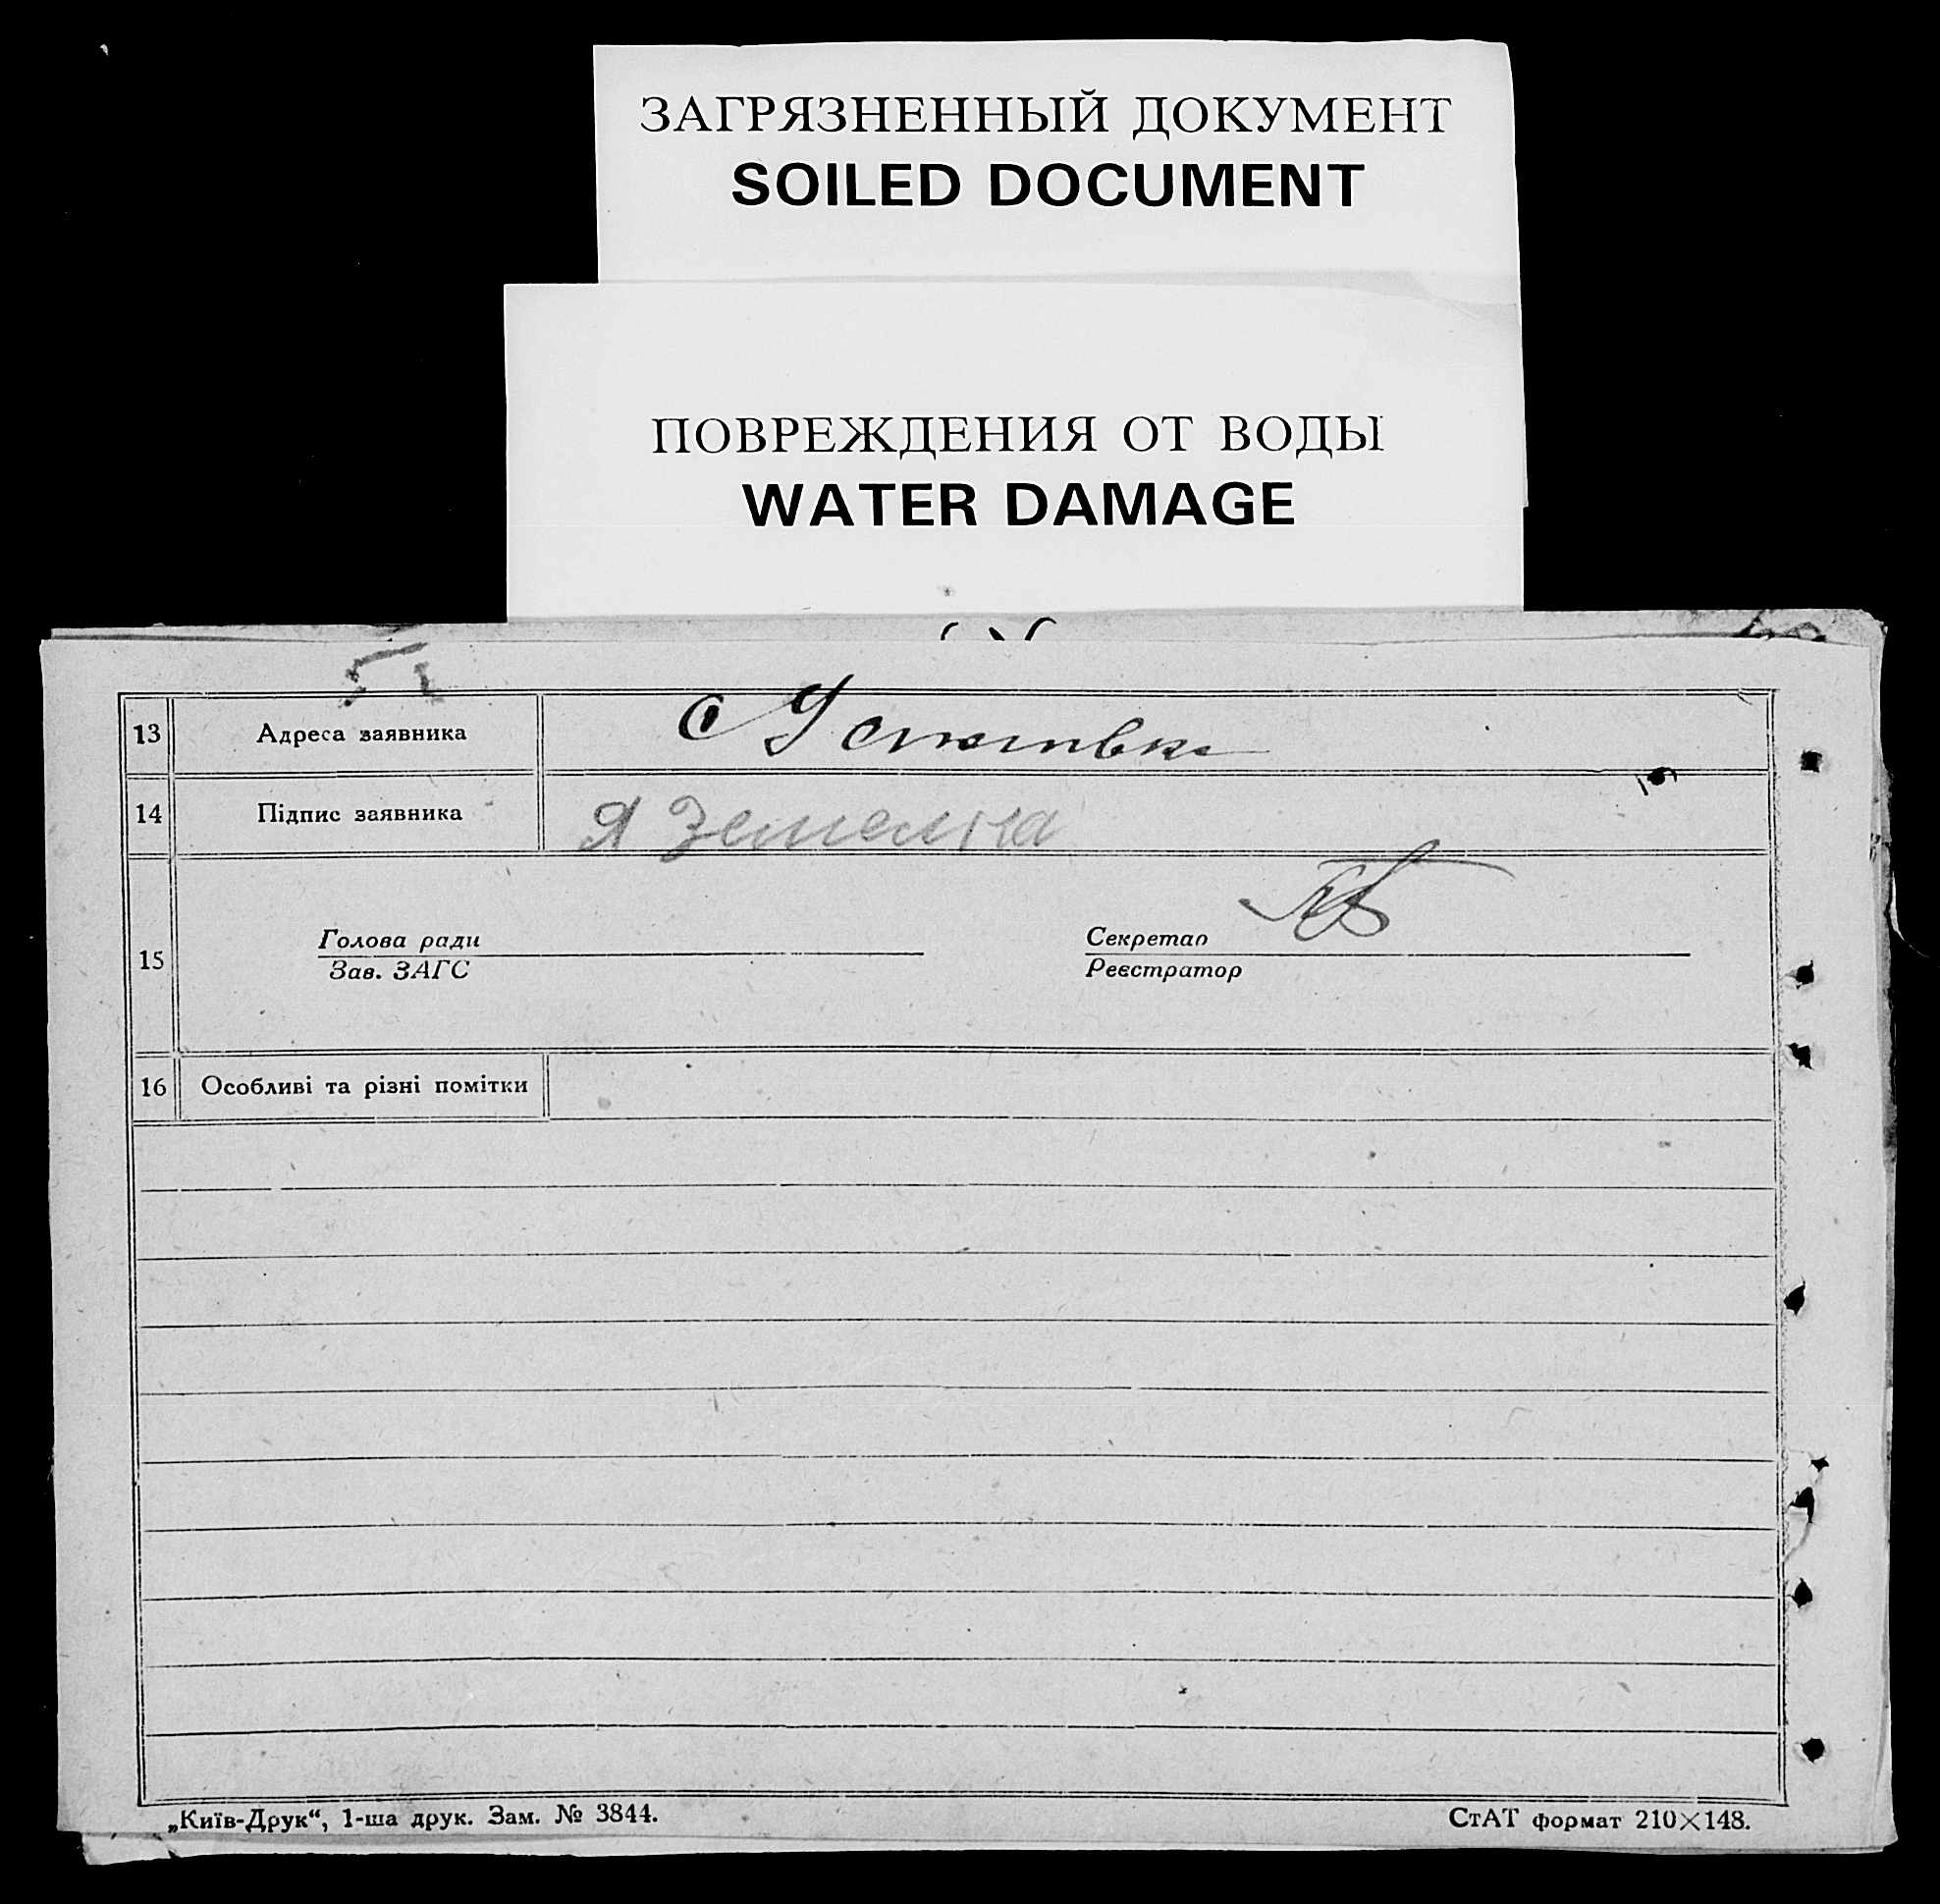 ЗАГРЯЗНЕННЫЙ ДОКУМЕНТ
SOILED DOCUMENT
ПОВРЕЖДЕНИЯ ОТ ВОДЫ
WATER DAMAGE
13 Адреса заявника с
14 Підпис заявника Я
15
Голова ради
Зав. ЗАГС
Секретар
Реєстратор
16 Особливі та різні помітки
„Київ-Друк“, 1-ша друк. Зам. № 3844.
СтАТ формат 210×148.